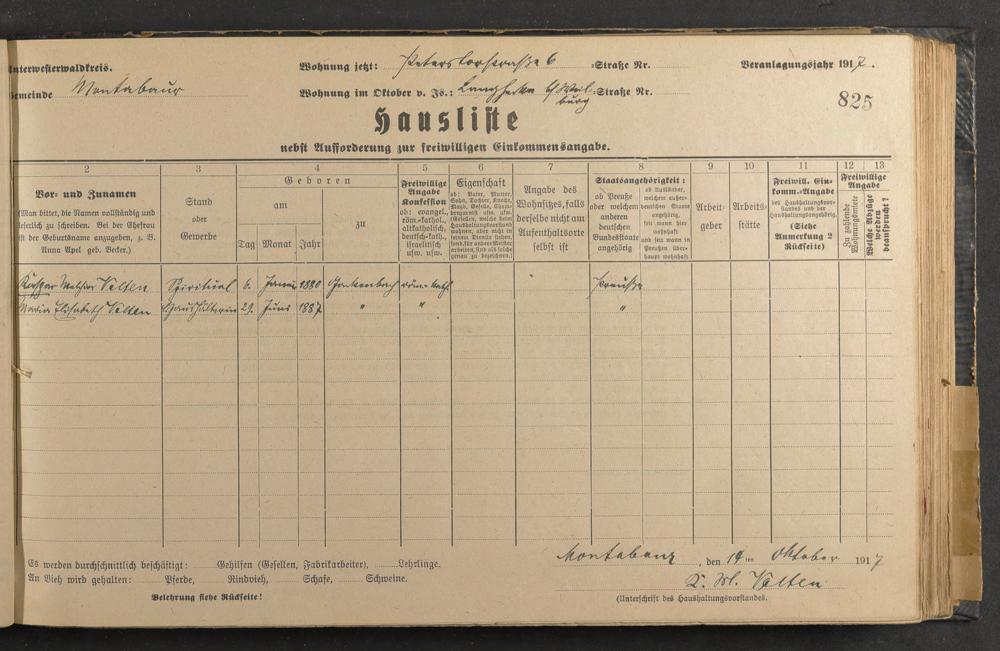 Unterwesterwaldkreis. Wohnung jetzt: Peterstorstraße 6 Straße Nr. Veranlagungsjahr 1917.
Gemeinde Montabaur Wohnung im Oktober v. Js.: b/Weilburg Straße Nr.
825
Hausliste
nebst Aufforderung zur freiwilligen Einkommensangabe.
2 3 4 5 6 7 8 9 10 11 12 13
Vor- und Zunamen
(Man bittet, die Namen vollständig und
leserlich zu schreiben. Bei der Ehefrau
ist der Geburtsname anzugeben, z. B.
Anna Apel geb. Becker.)
Stand
oder
Gewerbe
Geboren
am
zu
Tag Monat Jahr
Freiwillige
Angabe
Konfession
(ob: evangel.,
röm.-kathol.,
altkatholisch,
deutsch-kath.,
israelitisch
usw. usw.
Eigenschaft
Angabe des
Wohnsitzes, falls
derselbe nicht am
Aufenthaltsorte
selbst ist
Staatsangehörigkeit:
ob Preuße
oder welchem
anderen
deutschen
Bundesstaate
angehörig
ob Ausländer,
welchem außer-
deutschen Staate
angehörig,
seit wann hier
wohnhaft
und seit wann in
Preußen über-
haupt wohnhaft
Arbeit-
geber
Arbeits-
stätte
Freiwill. Ein-
komm.-Angabe
des Haushaltungsvor-
standes und der
Haushaltungsangehörig.
(Siehe
Anmerkung 2
Rückseite)
Freiwillige
Angabe
Zu zahlende
Wohnungsmiete
Welche Abzüge
werden
beansprucht?
Mathias Velten Spiritual 6. Januar 1880 röm. kath. Preuße
Maria Elisabeth Velten Haushälterin 29. Juni 1887 " " "
Es werden durchschnittlich beschäftigt: Gehilfen (Gesellen, Fabrikarbeiter), Lehrlinge.
An Vieh wird gehalten: Pferde, Rindvieh, Schafe, Schweine.
Belehrung siehe Rückseite!
Montabaur, den 14ten Oktober 1917
K. M. Velten
(Unterschrift des Haushaltungsvorstandes.